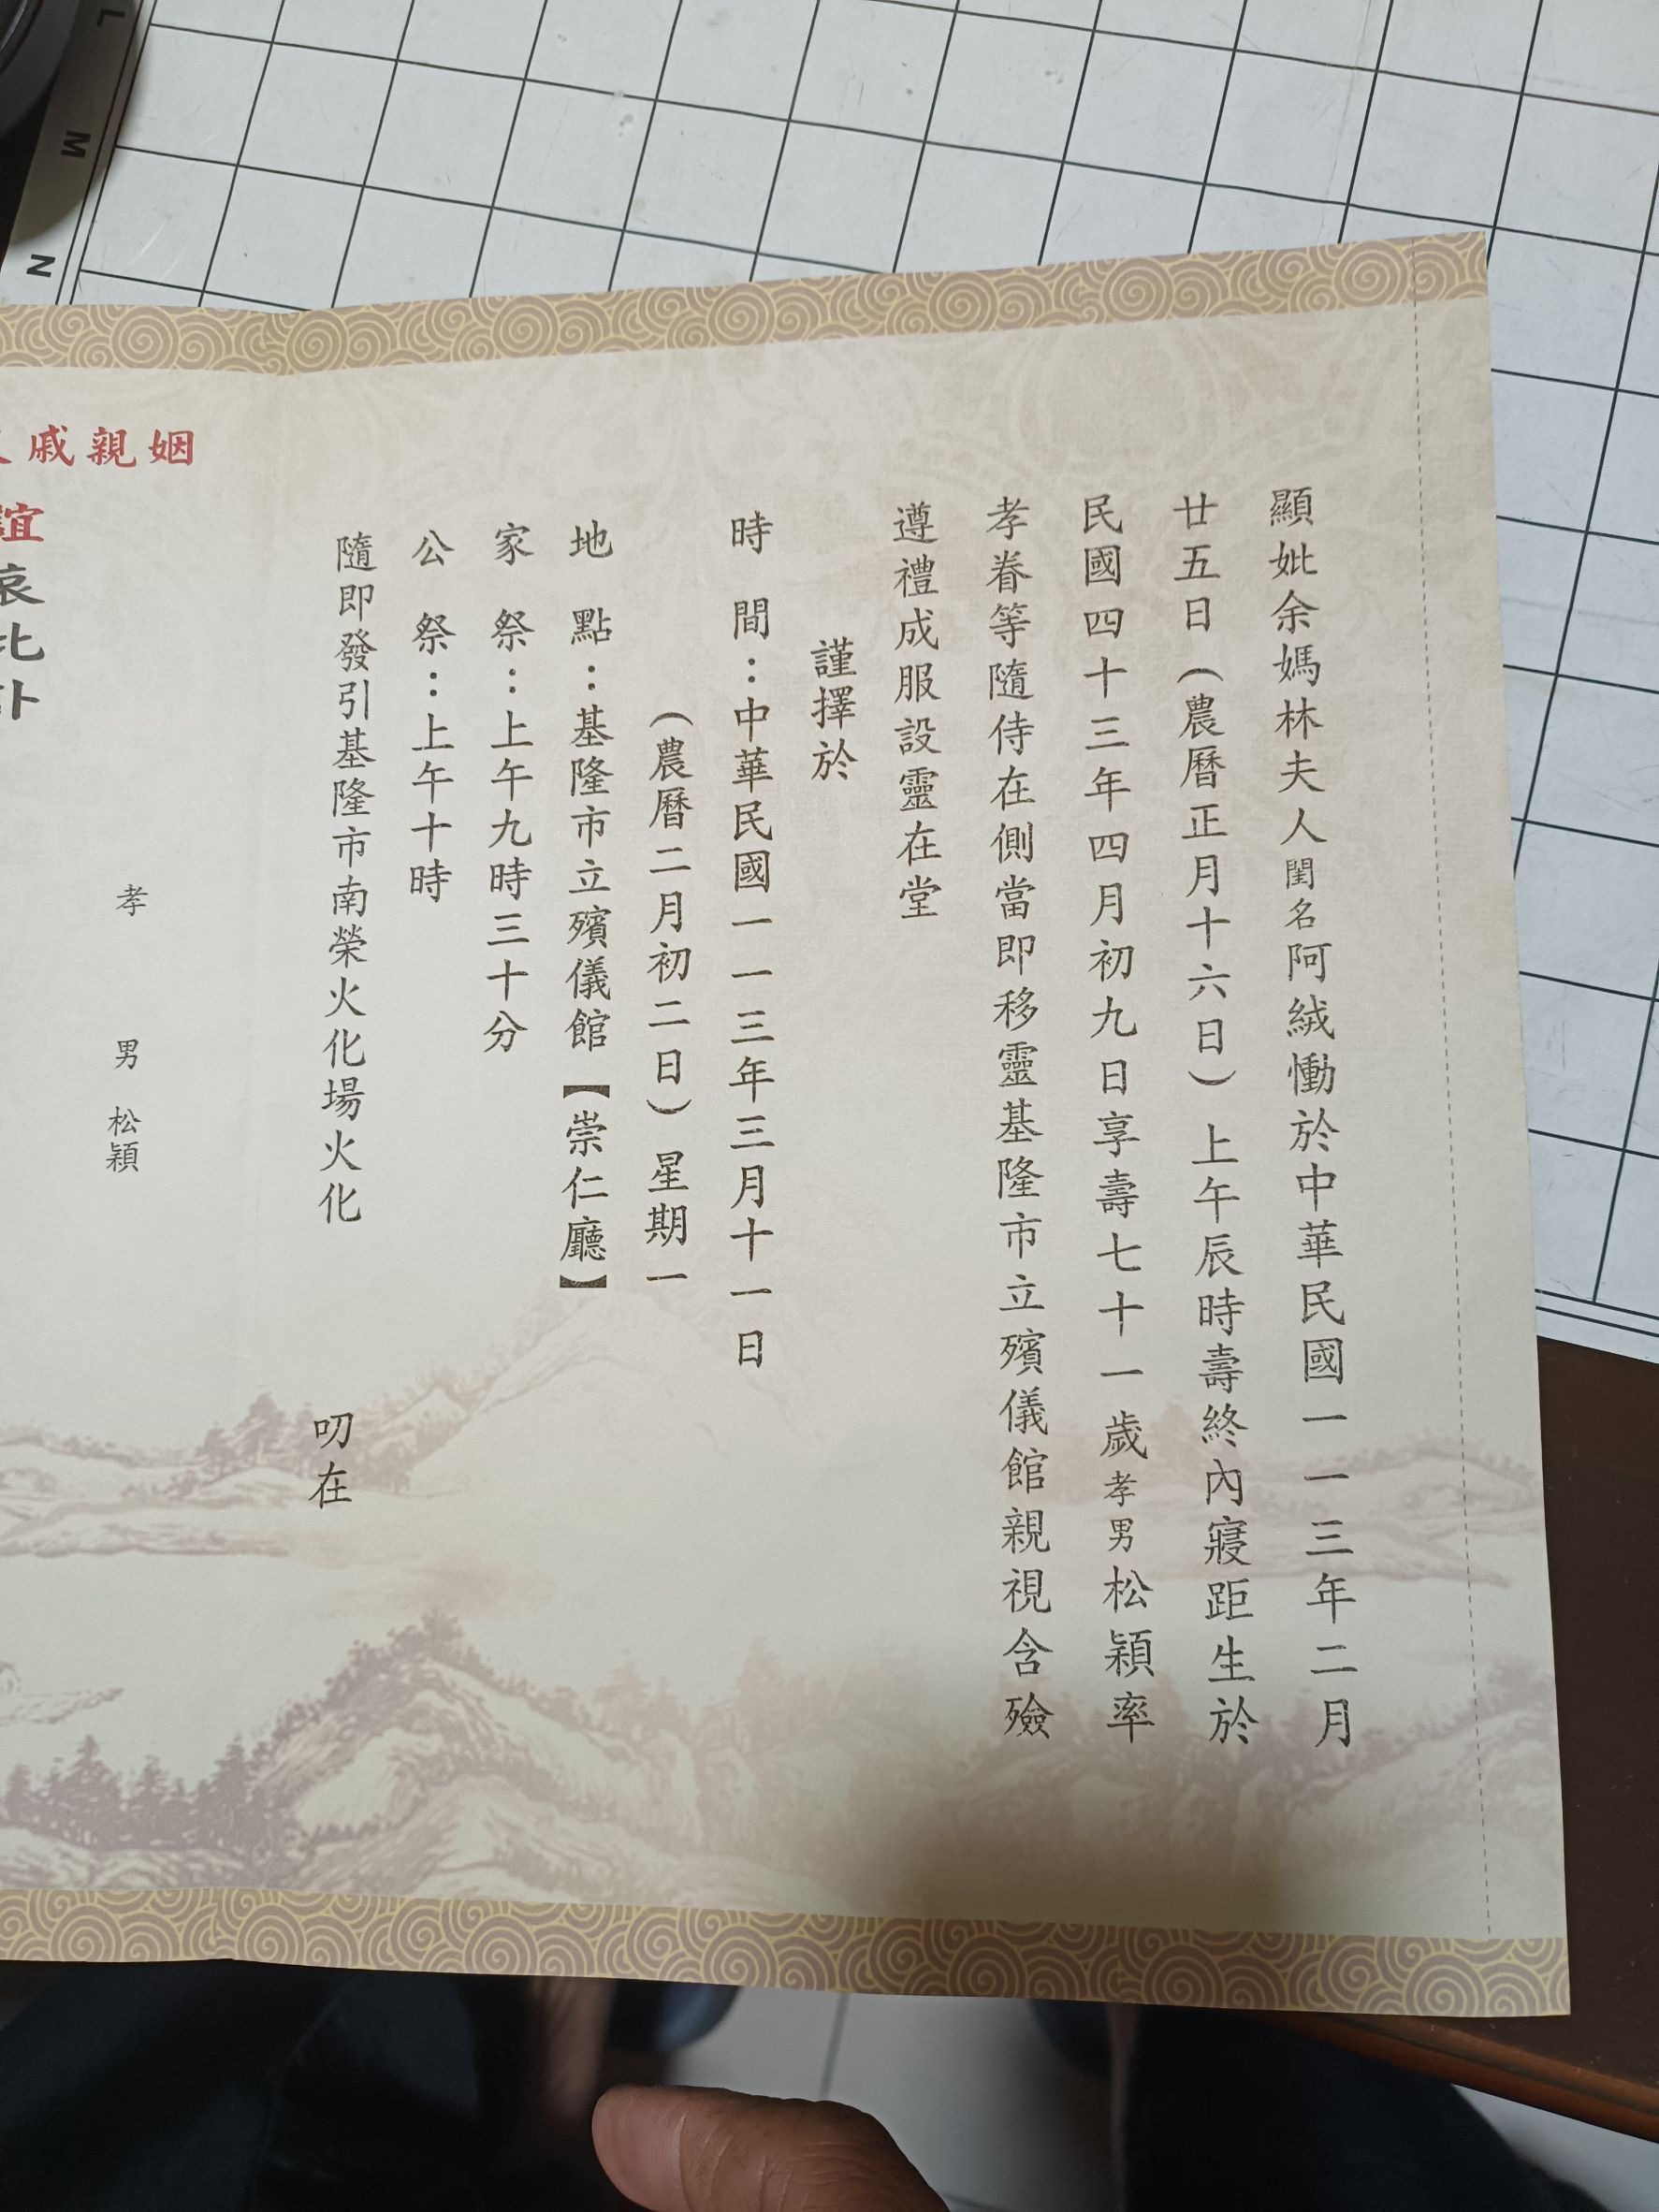 顯妣余媽林夫人閨名阿絨慟於中華民國一一三年二月
廿五日(農曆正月十六日)上午辰時壽終內寢距生於
民國四十三年四月初九日享壽七十一歲孝男松穎率
孝眷等隨侍在側當即移靈基隆市立殯儀館親視含殮
遵禮成服設靈在堂
謹擇於
時 間:中華民國一一三年三月十一日
(農曆二月初二日)星期一
地 點:基隆市立殯儀館【崇仁廳】
家 祭:上午九時三十分
公 祭:上午十時
隨即發引基隆市南榮火化場火化 叨在
姻親戚
孝 男 松穎
誼哀
L
M
N